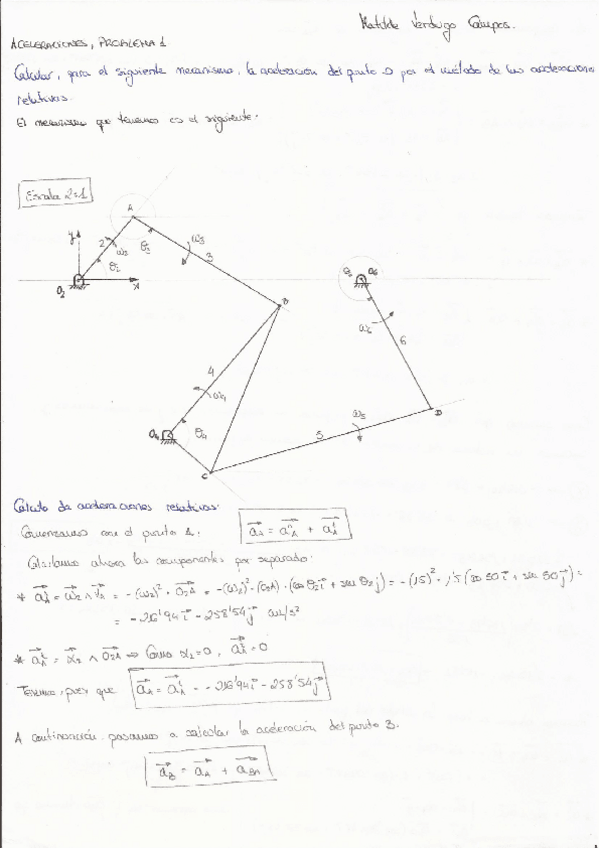 Matilde Verdugo Campos.
ACELERACIONES, PROBLEMA 1
Calcular, para el siguiente mecanismo, la aceleración del punto D por el método de las aceleraciones
relativas.
El mecanismo que tenemos es el siguiente:
Escala 2:1
A
y
2
ω2
θ2
θ3
ω3
3
O2
x
B
θ6
O6
ω6
6
4
ω4
O4
θ4
ω5
5
D
C
Cálculo de aceleraciones relativas:
Comenzamos con el punto A: aA = aA^n + aA^t
Calculamos ahora las componentes por separado:
* aA^n = ω2 ∧ vA = -(ω2)² · O2A = -(ω2)² · (O2A) · (cos θ2 i + sen θ2 j) = -(15)² · 1'5 (cos 50 i + sen 50 j) =
= -216'94 i - 258'54 j cm/s²
* aA^t = α2 ∧ O2A ⇒ Como α2 = 0, aA^t = 0
Tenemos, pues que aA = aA^n = -216'94 i - 258'54 j
A continuación pasamos a calcular la aceleración del punto B.
aB = aA + aBA